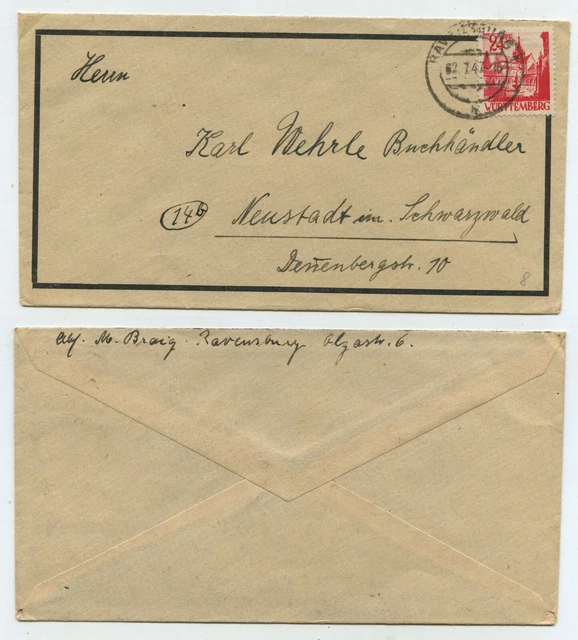 Herrn
Karl Wehrle Buchhändler
14b Neustadt im Schwarzwald
Dennenbergstr. 10
24
WÜRTTEMBERG
RAVENSBURG
2.7.47
8
M. Braig Ravensburg Olgastr. 6.